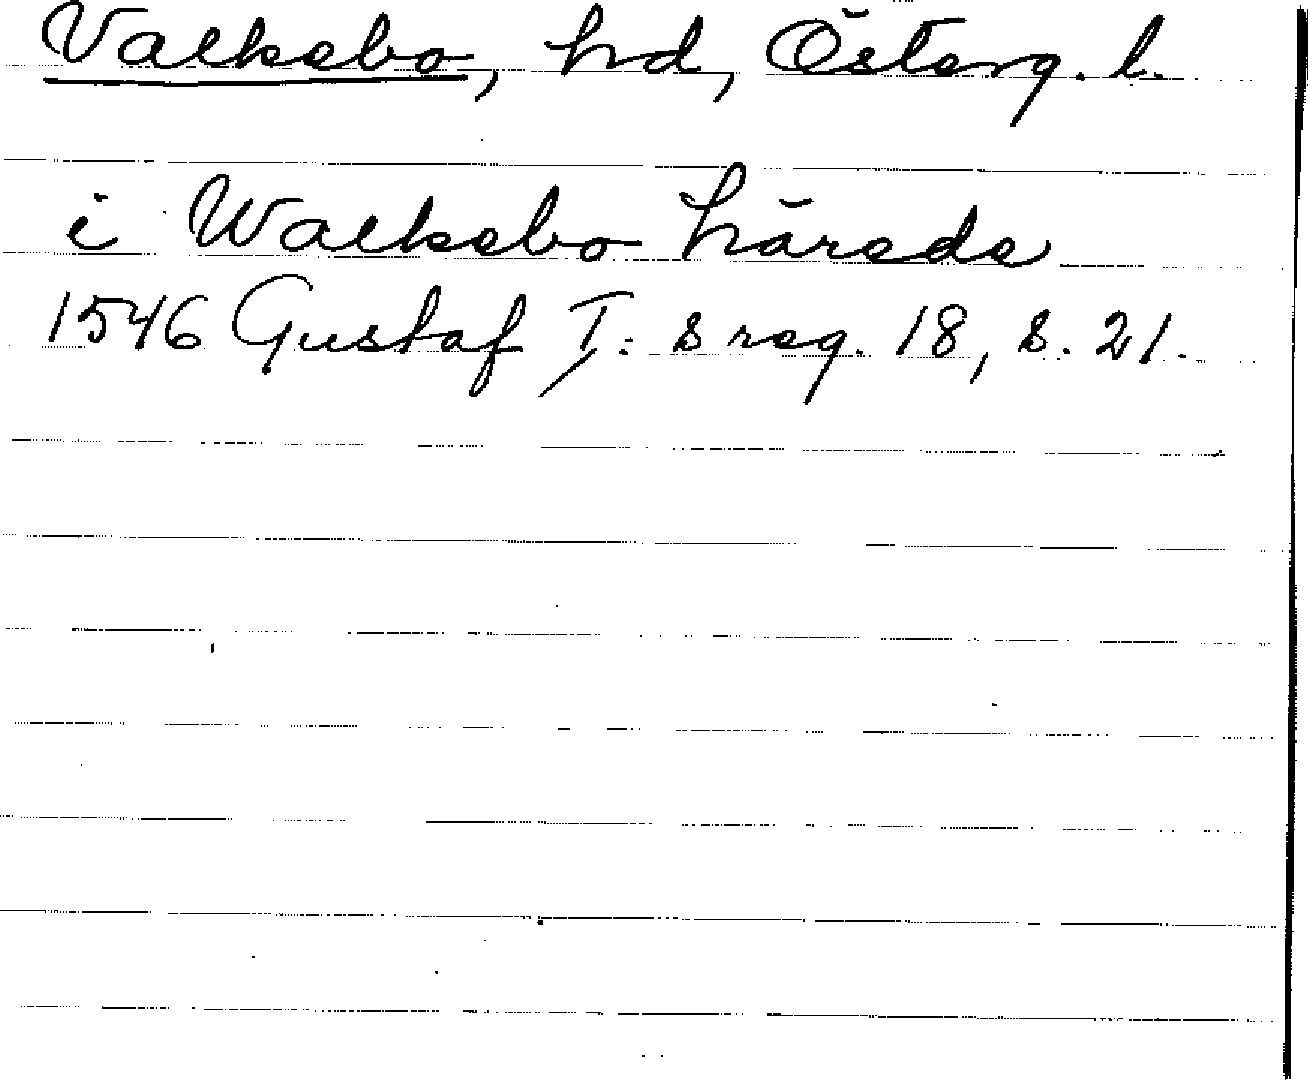 Valkebo, hd, Österg. l.
i Walkebo härede
1546 Gustaf I: s reg. 18, s. 21.